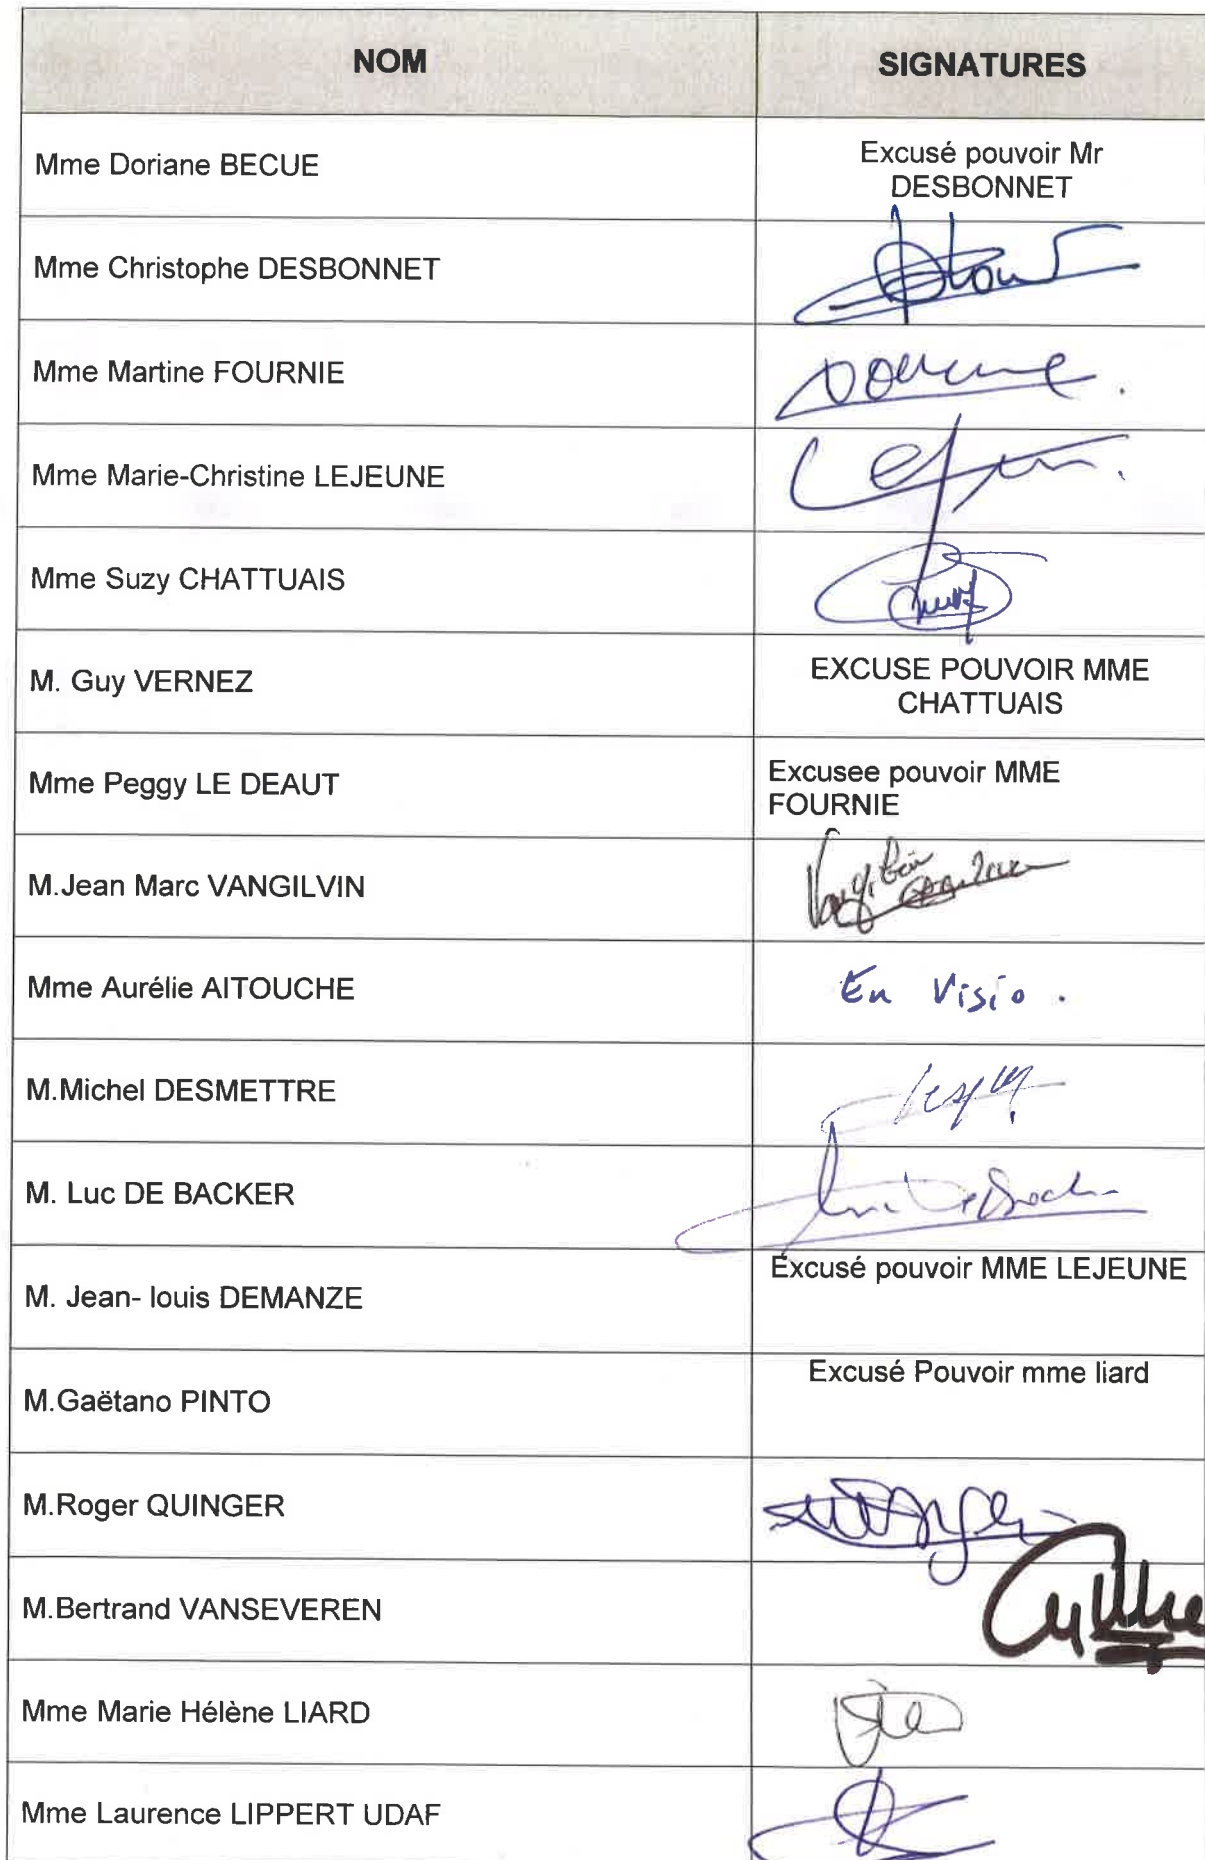 NOM
SIGNATURES
Mme Doriane BECUE
Excusé pouvoir Mr
DESBONNET
Mme Christophe DESBONNET
Mme Martine FOURNIE
Mme Marie-Christine LEJEUNE
Mme Suzy CHATTUAIS
M. Guy VERNEZ
EXCUSE POUVOIR MME
CHATTUAIS
Mme Peggy LE DEAUT
Excusee pouvoir MME
FOURNIE
M.Jean Marc VANGILVIN
Mme Aurélie AITOUCHE
En Visio .
M.Michel DESMETTRE
M. Luc DE BACKER
M. Jean- louis DEMANZE
Excusé pouvoir MME LEJEUNE
M.Gaëtano PINTO
Excusé Pouvoir mme liard
M.Roger QUINGER
M.Bertrand VANSEVEREN
Mme Marie Hélène LIARD
Mme Laurence LIPPERT UDAF